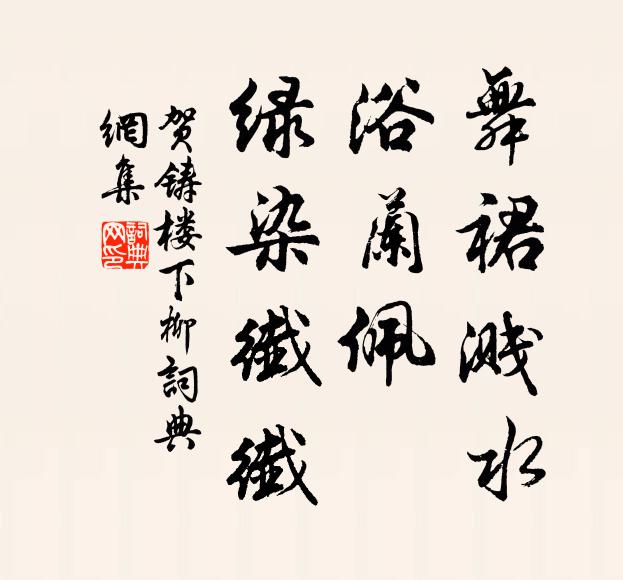 舞裙溅水
浴兰佩
绿染纤纤
贺铸楼下柳词典
網集
词典
网印